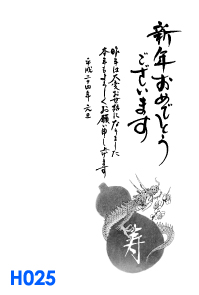 新年おめでとう
ございます
昨年は大変お世話になりました
本年もよろしくお願い申し上げます
平成二十四年 元旦
寿
H025